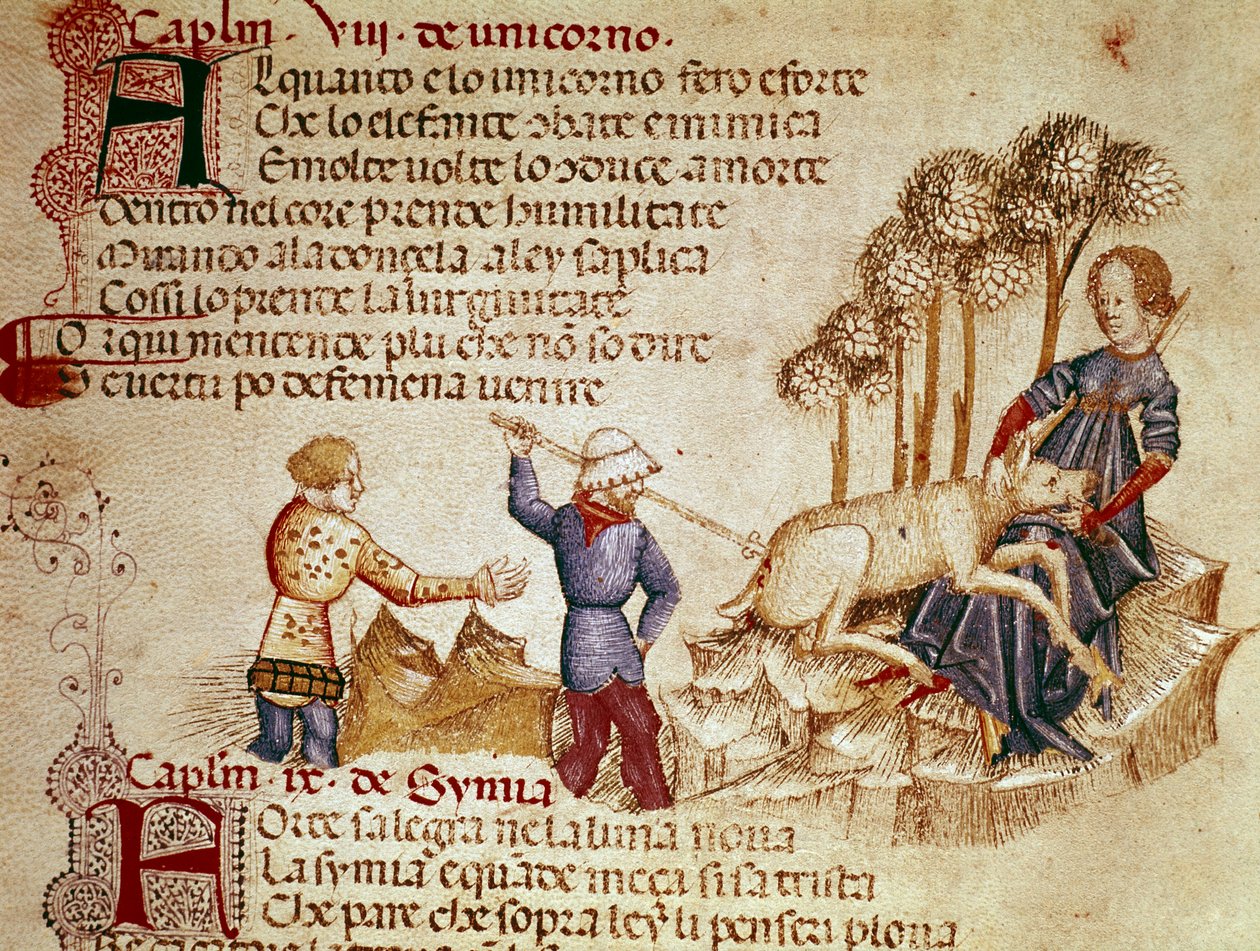 Caplm . Viij . de unicorno .
Alquanto e lo unicorno fero e forte
Che lo elefante ɔbate e inimica
E molte uolte lo ɔduce a morte
Dentro nel core prende humilitate
Mirando a la donçela a ley saplica
Cossi lo prende la uirginitate
Or qui me ntende plu che nō so dire
De uertu po de femena uenire
Caplm . ix . de Symia
Forte salegra ne la luna noua
La symia e quāde meça si sa trista
Che pare che sopra ley li penseri ploua